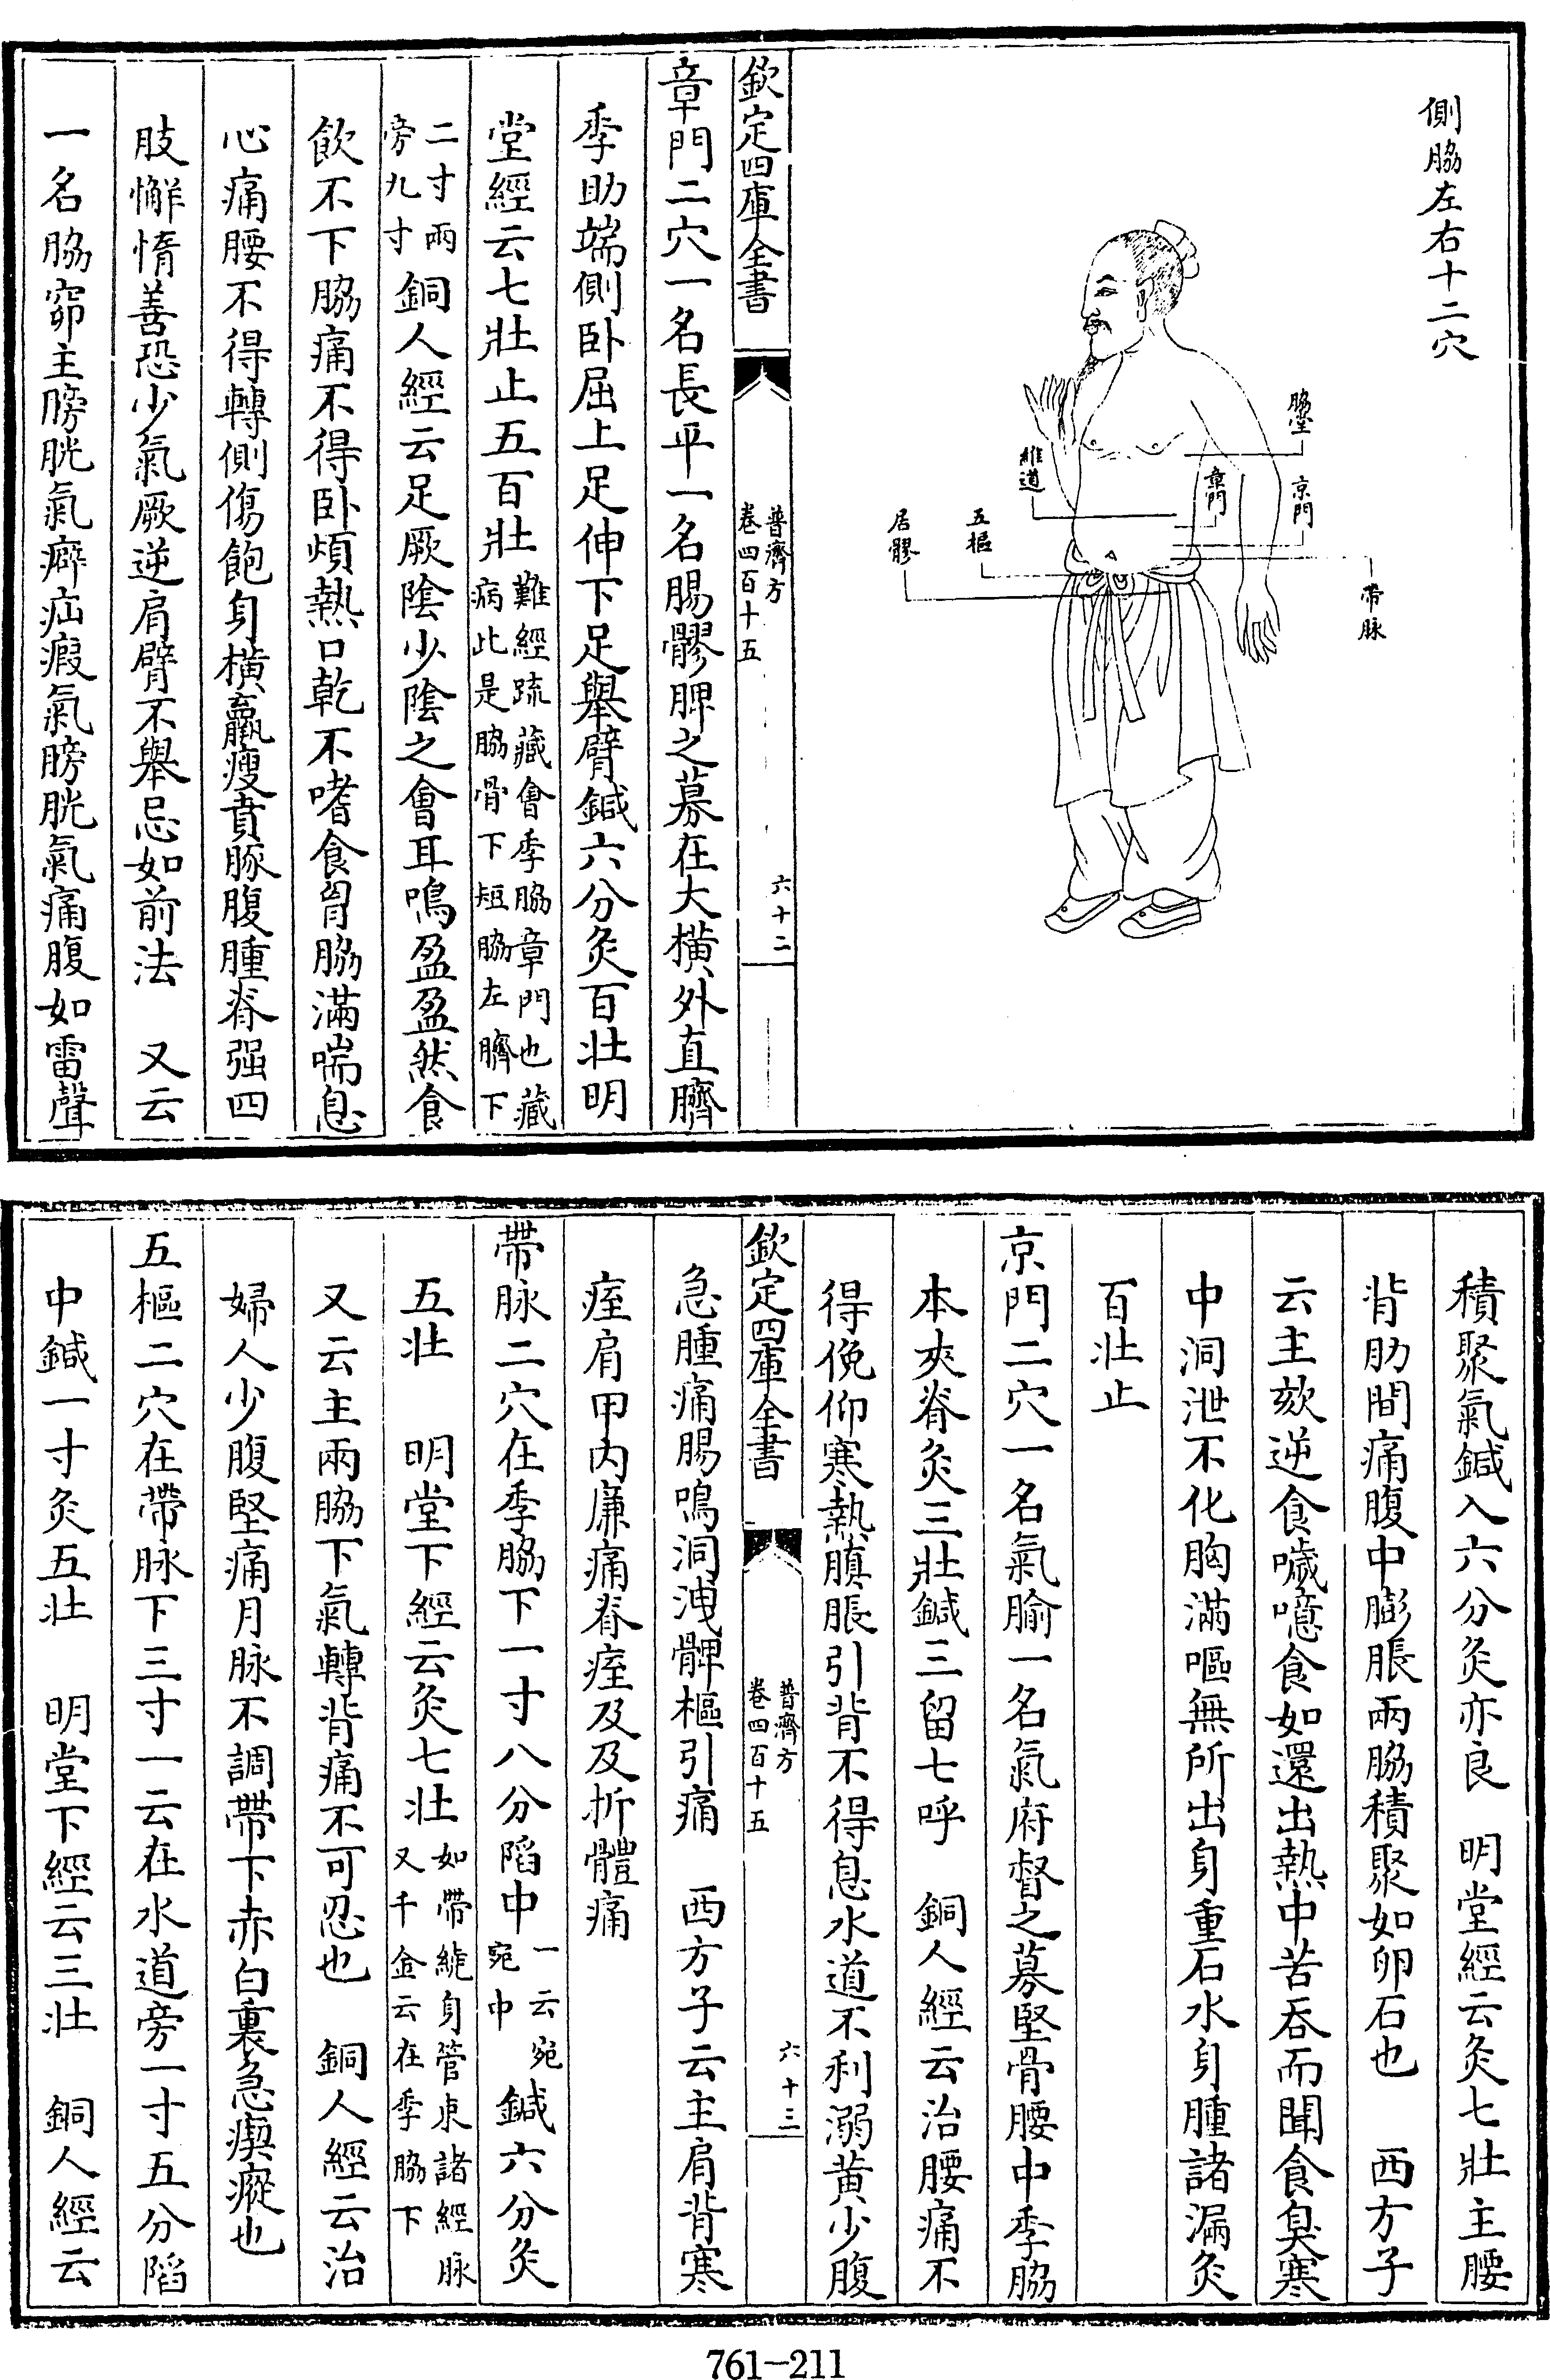 側脇左右十二穴
脇堂
京門
章門
維道
帶脉
五樞
居髎
欽定四庫全書
普濟方
卷四百十五
六十二
章門二穴一名長平一名腸髎脾之募在大橫外直臍
季肋端側卧屈上足伸下足舉臂鍼六分灸百壯明
堂經云七壯止五百壯難經疏藏會季脇章門也藏
病此是脇骨下短脇左臍下
二寸兩
旁九寸銅人經云足厥陰少陰之會耳鳴盈盈然食
飲不下脇痛不得卧煩熱口乾不嗜食胷脇滿喘息
心痛腰不得轉側傷飽身橫羸瘦賁豚腹腫脊强四
肢懈惰善恐少氣厥逆肩臂不舉忌如前法　又云
一名脇窌主膀胱氣癖疝瘕氣膀胱氣痛腹如雷聲
積聚氣鍼入六分灸亦良　明堂經云灸七壯主腰
背肋間痛腹中膨脹兩脇積聚如卵石也　西方子
云主欬逆食噦噫食如還出熱中苦吞而聞食臭寒
中洞泄不化胸滿嘔無所出身重石水身腫諸漏灸
百壯止
京門二穴一名氣腧一名氣府督之募堅骨腰中季脇
本夾脊灸三壯鍼三留七呼　銅人經云治腰痛不
得俛仰寒熱䐜脹引背不得息水道不利溺黄少腹
欽定四庫全書
普濟方
卷四百十五
六十三
急腫痛腸鳴洞洩髀樞引痛　西方子云主肩背寒
痓肩甲内廉痛脊痓及及折體痛
帶脉二穴在季脇下一寸八分陷中一云宛
宛中鍼六分灸
五壯　明堂下經云灸七壯如帶繞身管束諸經脉
又千金云在季脇下
又云主兩脇下氣轉背痛不可忍也　銅人經云治
婦人少腹堅痛月脉不調帶下赤白裏急瘈瘲也
五樞二穴在帶脉下三寸一云在水道旁一寸五分陷
中鍼一寸灸五壯　明堂下經云三壯　銅人經云
761-211